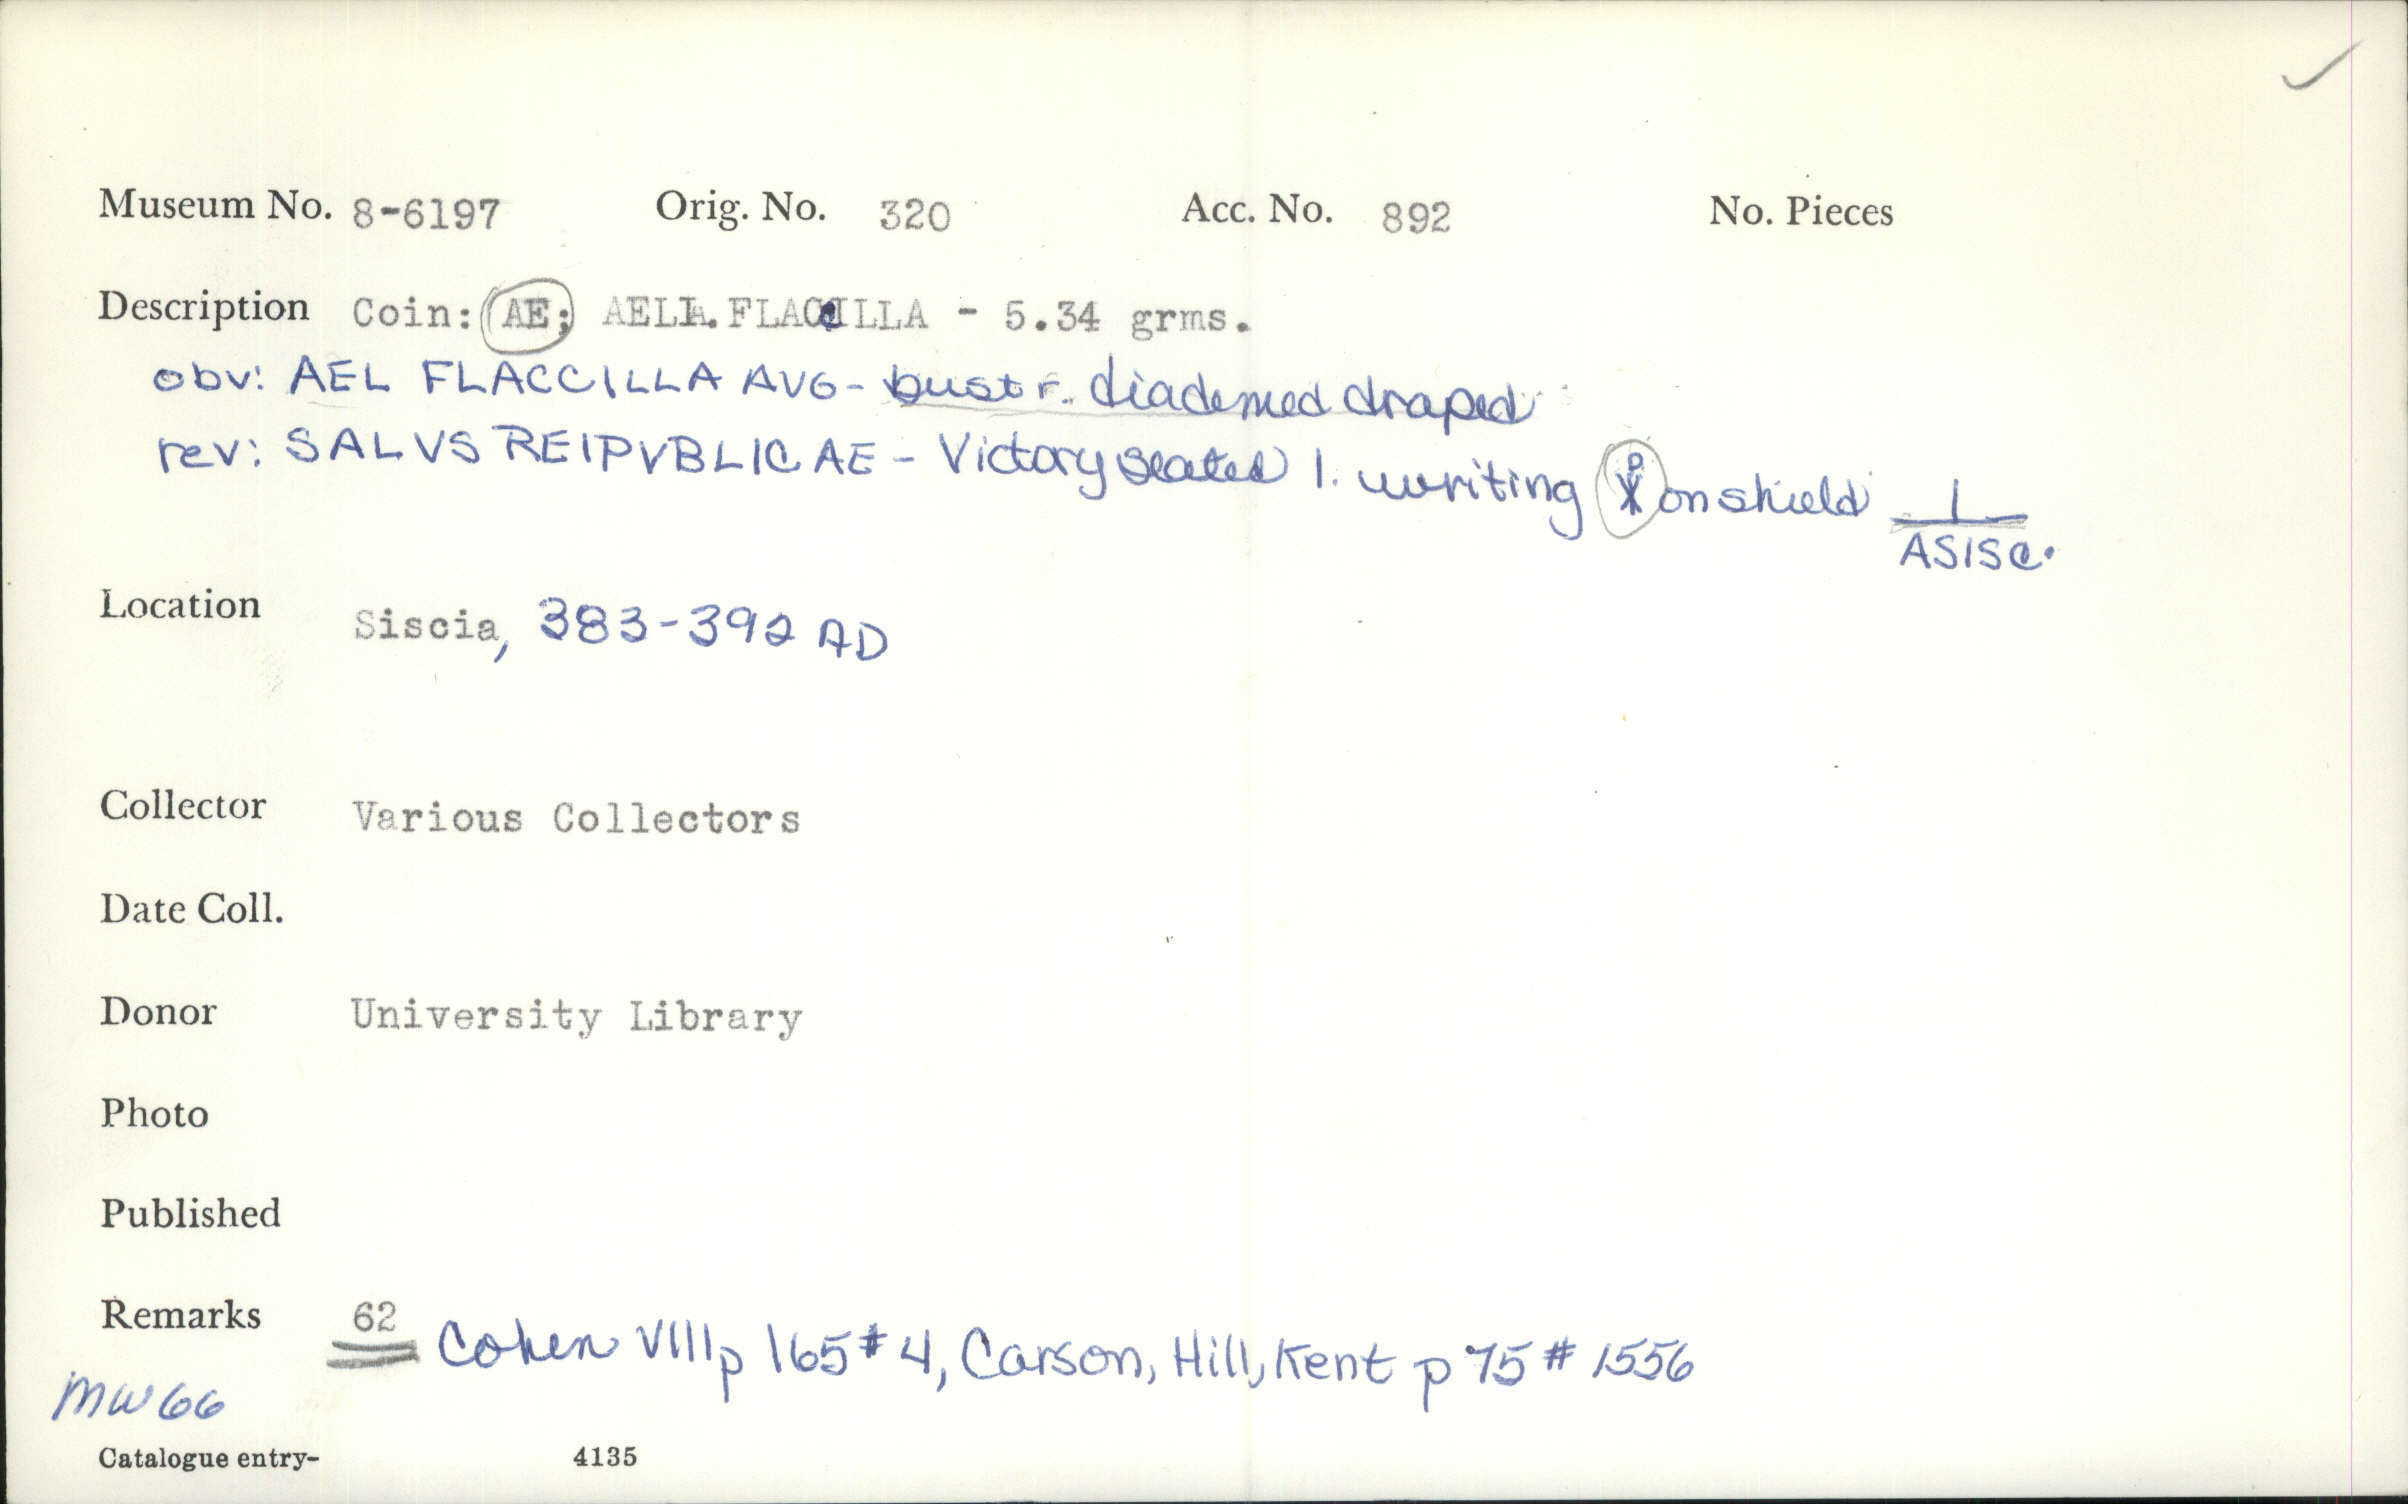 Museum No. 8-6197 Orig. No. 320 Acc. No. 892 No. Pieces
Description Coin: AE; AELIA. FLACCILLA - 5.34 grms.
obv: AEL FLACCILLA AVG - bust r. diademed draped
rev: SALVS REIPVBLICAE - Victory seated l. writing ☧ on shield |
ASISC·
Location Siscia, 383-392 AD
Collector Various Collectors
Date Coll.
Donor University Library
Photo
Published
Remarks 62 Cohen VIII p 165 # 4, Carson, Hill, Kent p 75 # 1556
MW 66
Catalogue entry- 4135